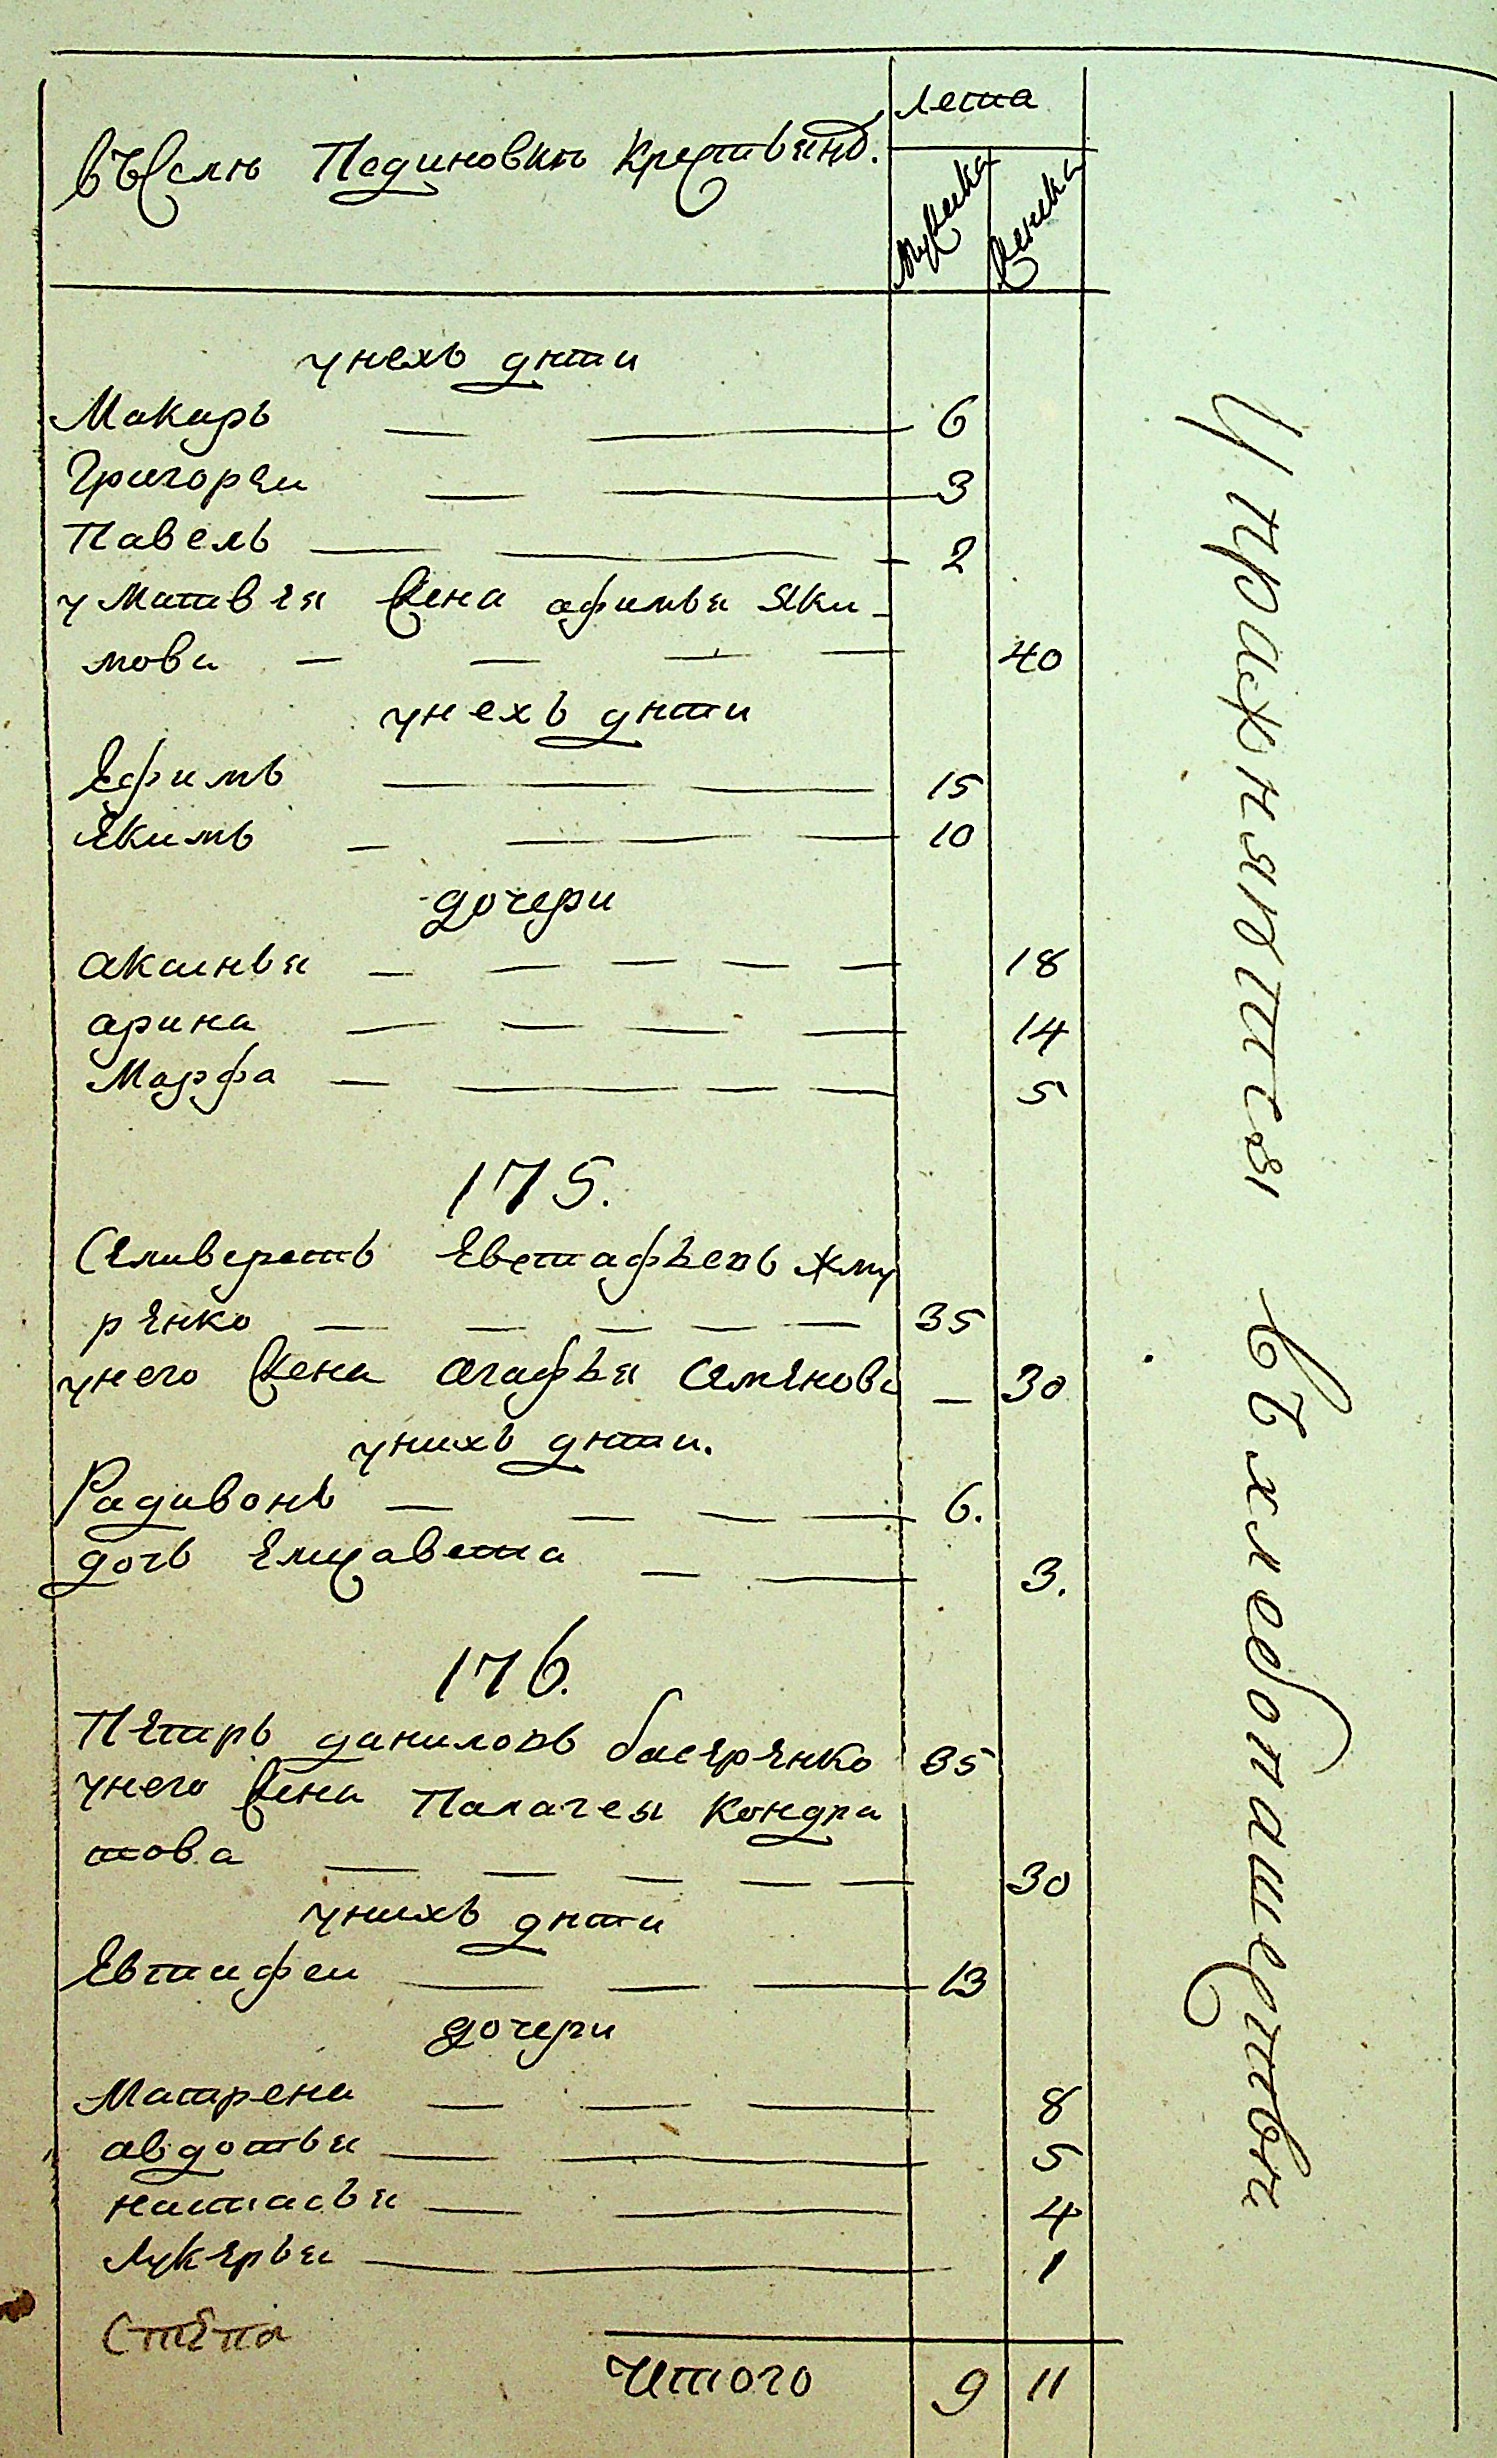 лета
въ селѣ Пединовки крестьянъ.
мужска женска
у нехъ дѣти
Макаръ — — 6
Григореи — — 3
Павелъ — — — 2
у матвея жена афимья Яки-
мова — — — — 40
у нехъ дѣти
Ефимъ — — 15
Екимъ — — — 10
дочери
аксинья — — — — — 18
арина — — — — 14
Марфа — — — — 5
175.
Селиверстъ Евстафьевъ жму
ренко — — — — — 35
у него жена агафья Семенова — 30
у нихъ дѣти.
Радивонъ — — — — 6.
дочь Елизавета — — 3.
176.
Петръ даниловъ басеренко 35
у него жена Палагея кондра
това — — — — — 30
у нихъ дѣти
Евтифеи — — — 13
дочери
Матрена — — — 8
авдотья — — 5
настасья — — 4
лукерья — — 1
Степа
Итого 9 11
Упражняютсы въ хлебопашествѣ